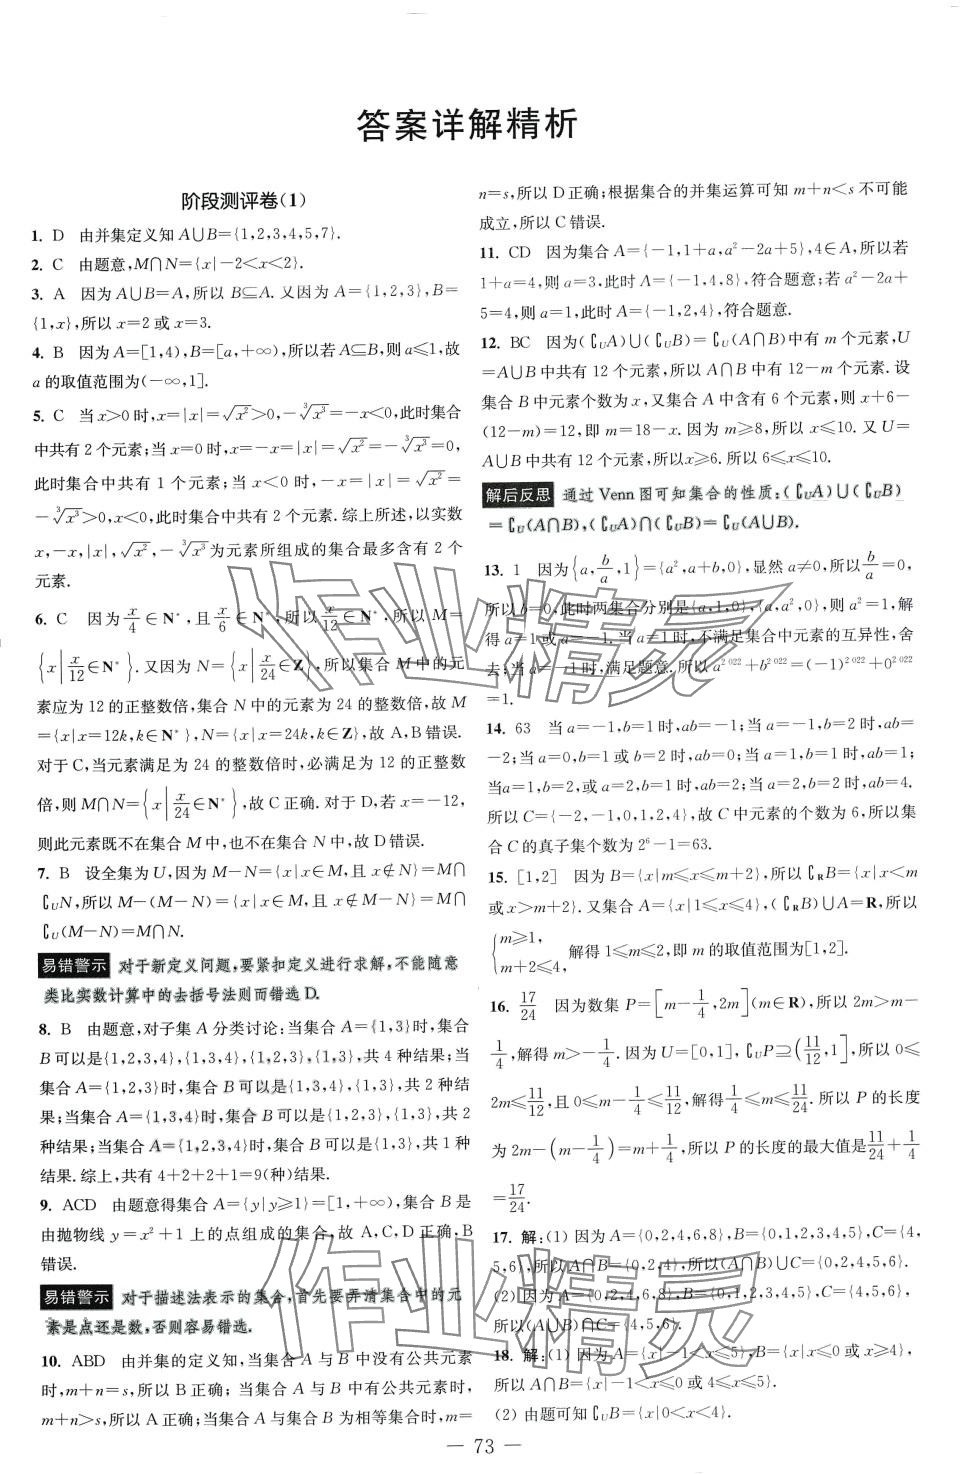 答案详解精析
阶段测评卷(1)
1. D 由并集定义知 A∪B={1,2,3,4,5,7}.
2. C 由题意,M∩N={x|-2<x<2}.
3. A 因为A∪B=A,所以 B⊆A. 又因为 A={1,2,3},B=
{1,x},所以 x=2 或 x=3.
4. B 因为A=[1,4),B=[a,+∞),所以若A⊆B,则a≤1,故
a 的取值范围为(-∞,1].
5. C 当 x>0 时,x=|x|=√x²>0,-∛x³=-x<0,此时集合
中共有 2 个元素;当 x=0 时,x=-x=|x|=√x²=-∛x³=0,
此时集合中共有 1 个元素;当 x<0 时,-x=|x|=√x²=
-∛x³>0,x<0,此时集合中共有 2 个元素. 综上所述,以实数
x,-x,|x|,√x²,-∛x³为元素所组成的集合最多含有 2 个
元素.
6. C 因为 x/4∈N*,且 x/6∈N*,所以 x/12∈N*,所以 M=
{x|x/12∈N*}. 又因为 N={x|x/24∈Z},所以集合 M 中的元
素应为 12 的正整数倍,集合 N 中的元素为 24 的整数倍,故 M
={x|x=12k,k∈N*},N={x|x=24k,k∈Z},故 A,B 错误.
对于 C,当元素满足为 24 的整数倍时,必满足为 12 的正整数
倍,则 M∩N={x|x/24∈N*},故 C 正确. 对于 D,若 x=-12,
则此元素既不在集合 M 中,也不在集合 N 中,故 D 错误.
7. B 设全集为 U,因为 M-N={x|x∈M,且 x∉N}=M∩
∁UN,所以 M-(M-N)={x|x∈M,且 x∉M-N}=M∩
∁U(M-N)=M∩N.
易错警示 对于新定义问题,要紧扣定义进行求解,不能随意
类比实数计算中的去括号法则而错选 D.
8. B 由题意,对子集 A 分类讨论:当集合 A={1,3}时,集合
B 可以是{1,2,3,4},{1,3,4},{1,2,3},{1,3},共 4 种结果;当
集合 A={1,2,3}时,集合 B 可以是{1,3,4},{1,3},共 2 种
结果;当集合 A={1,3,4}时,集合 B 可以是{1,2,3},{1,3},共 2
种结果;当集合 A={1,2,3,4}时,集合 B 可以是{1,3},共 1 种
结果. 综上,共有 4+2+2+1=9(种)结果.
9. ACD 由题意得集合 A={y|y≥1}=[1,+∞),集合 B 是
由抛物线 y=x²+1 上的点组成的集合,故 A,C,D 正确,B
错误.
易错警示 对于描述法表示的集合,首先要弄清集合中的元
素是点还是数,否则容易错选.
10. ABD 由并集的定义知,当集合 A 与 B 中没有公共元素
时,m+n=s,所以 B 正确;当集合 A 与 B 中有公共元素时,
m+n>s,所以 A 正确;当集合 A 与集合 B 为相等集合时,m=
n=s,所以 D 正确;根据集合的并集运算可知 m+n<s 不可能
成立,所以 C 错误.
11. CD 因为集合 A={-1,1+a,a²-2a+5},4∈A,所以若
1+a=4,则 a=3,此时 A={-1,4,8},符合题意;若 a²-2a+
5=4,则 a=1,此时 A={-1,2,4},符合题意.
12. BC 因为(∁UA)∪(∁UB)=∁U(A∩B)中有 m 个元素,U
=A∪B 中共有 12 个元素,所以 A∩B 中有 12-m 个元素. 设
集合 B 中元素个数为 x,又集合 A 中含有 6 个元素,则 x+6-
(12-m)=12,即 m=18-x. 因为 m≥8,所以 x≤10. 又 U=
A∪B 中共有 12 个元素,所以x≥6. 所以 6≤x≤10.
解后反思 通过 Venn 图可知集合的性质:(∁UA)∪(∁UB)
=∁U(A∩B),(∁UA)∩(∁UB)=∁U(A∪B).
13. 1 因为{a,b/a,1}={a²,a+b,0},显然 a≠0,所以b/a=0,
所以 b=0,此时两集合分别是{a,1,0},{a,a²,0},则 a²=1,解
得 a=1 或 a=-1. 当 a=1 时,不满足集合中元素的互异性,舍
去;当 a=-1 时,满足题意. 所以 a²⁰²²+b²⁰²²=(-1)²⁰²²+0²⁰²²
=1.
14. 63 当 a=-1,b=1 时,ab=-1;当 a=-1,b=2 时,ab=
-2;当 a=0,b=1 或 b=2 时,ab=0;当 a=1,b=1 时,ab=1;
当a=1,b=2,或 a=2,b=1 时,ab=2;当 a=2,b=2 时,ab=4.
所以 C={-2,-1,0,1,2,4},故 C 中元素的个数为 6,所以集
合 C 的真子集个数为 2⁶-1=63.
15. [1,2] 因为 B={x|m≤x≤m+2},所以∁RB={x|x<m
或x>m+2}. 又集合 A={x|1≤x≤4},(∁RB)∪A=R,所以
{m≥1, m+2≤4, 解得 1≤m≤2,即 m 的取值范围为[1,2].
16. 17/24 因为数集 P=[m-1/4,2m](m∈R),所以 2m>m-
1/4,解得 m>-1/4. 因为 U=[0,1],∁UP⊇(11/12,1],所以 0≤
2m≤11/12,且 0≤m-1/4≤11/12,解得1/4≤m≤11/24. 所以 P 的长度
为 2m-(m-1/4)=m+1/4,所以 P 的长度的最大值是11/24+1/4
=17/24.
17. 解:(1) 因为 A={0,2,4,6,8},B={0,1,2,3,4,5},C={4,
5,6},所以 A∩B={0,2,4},所以(A∩B)∪C={0,2,4,5,6}.
(2) 因为A={0,2,4,6,8},B={0,1,2,3,4,5},C={4,5,6},所以
(A∪B)∩C={4,5,6}.
18. 解:(1) 因为 A={x|-1<x≤5},B={x|x≤0 或 x≥4},
所以 A∩B={x|-1<x≤0 或 4≤x≤5}.
(2) 由题可知∁UB={x|0<x<4}.
— 73 —
作业精灵
作业精灵